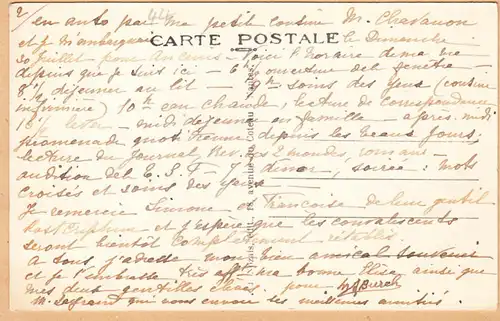 2/ en auto par ma petit cousin M. Chavanon
CARTE POSTALE
et je m'embarquai le Dimanche
30 juillet pour Ancenis - Voici l'horaire de ma vie
depuis que je suis ici - 6h ouverture de la fenêtre -
8h 1/2 déjeuner au lit - 9h soins des yeux (cousine
infirmière) 10h eau chaude, lecture de correspondance
11h lever - midi déjeuner en famille - après midi
promenade quotidienne depuis les beaux jours,
lecture du Journal, Rev. des 2 mondes, romans -
audition de la T.S.F - 7h dîner, soirée : mots
croisés et soins des yeux
Je remercie Simone et Françoise de leur gentil
post scriptum et j'espère que les convalescents
seront bientôt complètement rétablis.
A tous, j'adresse mon bien amical souvenir
et je t'embrasse très affect. ma bonne Élise ainsi que
mes deux gentilles élèves. pour M Burch
M. Legrand qui vous envoie ses meilleures amitiés.
avenue du Coteau, Nantes